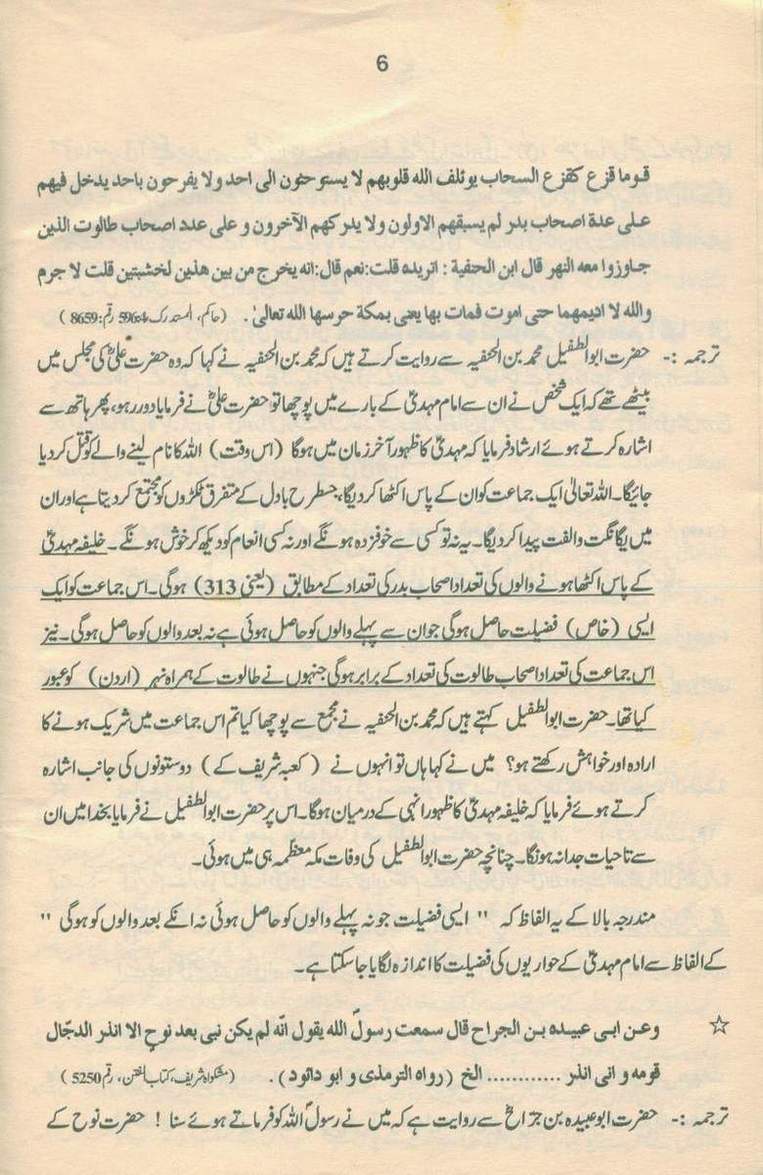 6
قوما قزع كقزع السحاب يوئلف الله قلوبهم لا يستوحثون الى احد ولا يفرحون باحد يدخل فيهم
على عدة اصحاب بدر لم يسبقهم الاولون ولا يدركهم الآخرون و على عدد اصحاب طالوت الذين
جاوزوا معه النهر قال ابن الحنفية : اتريده قلت:نعم قال:انه يخرج من بين هذين لخشبتين قلت لا جرم
والله لا اديمهما حتى اموت فمات بها يعنى بمكة حرسها الله تعالىٰ. (حاکم، المستدرک 4:596 رقم:8659)
ترجمہ :- حضرت ابوالطفیل محمد بن الحنفیہ سے روایت کرتے ہیں کہ محمد بن الحنفیہ نے کہا کہ وہ حضرت علیؓ کی مجلس میں
بیٹھے تھے کہ ایک شخص نے ان سے امام مہدیؑ کے بارے میں پوچھا تو حضرت علیؓ نے فرمایا دور رہو، پھر ہاتھ سے
اشارہ کرتے ہوئے ارشاد فرمایا کہ مہدیؑ کا ظہور آخر زمان میں ہوگا (اس وقت) اللہ کا نام لینے والے کو قتل کردیا
جائیگا۔ اللہ تعالیٰ ایک جماعت کو ان کے پاس اکٹھا کردیگا، جسطرح بادل کے متفرق ٹکڑوں کو مجتمع کردیتا ہے اور ان
میں یگانگت والفت پیدا کردیگا۔ یہ نہ تو کسی سے خوفزدہ ہونگے اور نہ کسی انعام کو دیکھ کر خوش ہونگے۔ خلیفہ مہدیؑ
کے پاس اکٹھا ہونے والوں کی تعداد اصحاب بدر کی تعداد کے مطابق (یعنی 313) ہوگی۔ اس جماعت کو ایک
ایسی (خاص) فضیلت حاصل ہوگی جو ان سے پہلے والوں کو حاصل ہوئی ہے نہ بعد والوں کو حاصل ہوگی۔ نیز
اس جماعت کی تعداد اصحاب طالوت کی تعداد کے برابر ہوگی جنہوں نے طالوت کے ہمراہ نہر (اردن) کو عبور
کیا تھا۔ حضرت ابوالطفیل کہتے ہیں کہ محمد بن الحنفیہ نے مجمع سے پوچھا کیا تم اس جماعت میں شریک ہونے کا
ارادہ اور خواہش رکھتے ہو؟ میں نے کہا ہاں تو انہوں نے (کعبہ شریف کے) دوستونوں کی جانب اشارہ
کرتے ہوئے فرمایا کہ خلیفہ مہدیؑ کا ظہور انہی کے درمیان ہوگا۔ اس پر حضرت ابوالطفیل نے فرمایا بخدا میں ان
سے تاحیات جدا نہ ہونگا۔ چنانچہ حضرت ابوالطفیل کی وفات مکہ معظمہ ہی میں ہوئی۔
مندرجہ بالا کے یہ الفاظ کہ " ایسی فضیلت جو نہ پہلے والوں کو حاصل ہوئی نہ انکے بعد والوں کو ہوگی "
کے الفاظ سے امام مہدیؑ کے حواریوں کی فضیلت کا اندازہ لگایا جاسکتا ہے۔
☆ وعن ابى عبيده بن الجراح قال سمعت رسولؐ الله يقول انّه لم يكن نبى بعد نوح الا انذر الدجّال
قومه و انى انذر ............ الخ (رواه الترمذى و ابو دائود). (مشکواۃ شریف، کتاب الفتن، رقم 5250)
ترجمہ :- حضرت ابو عبیدہ بن جرّاحؓ سے روایت ہے کہ میں نے رسولؐ اللہ کو فرماتے ہوئے سنا ! حضرت نوح کے